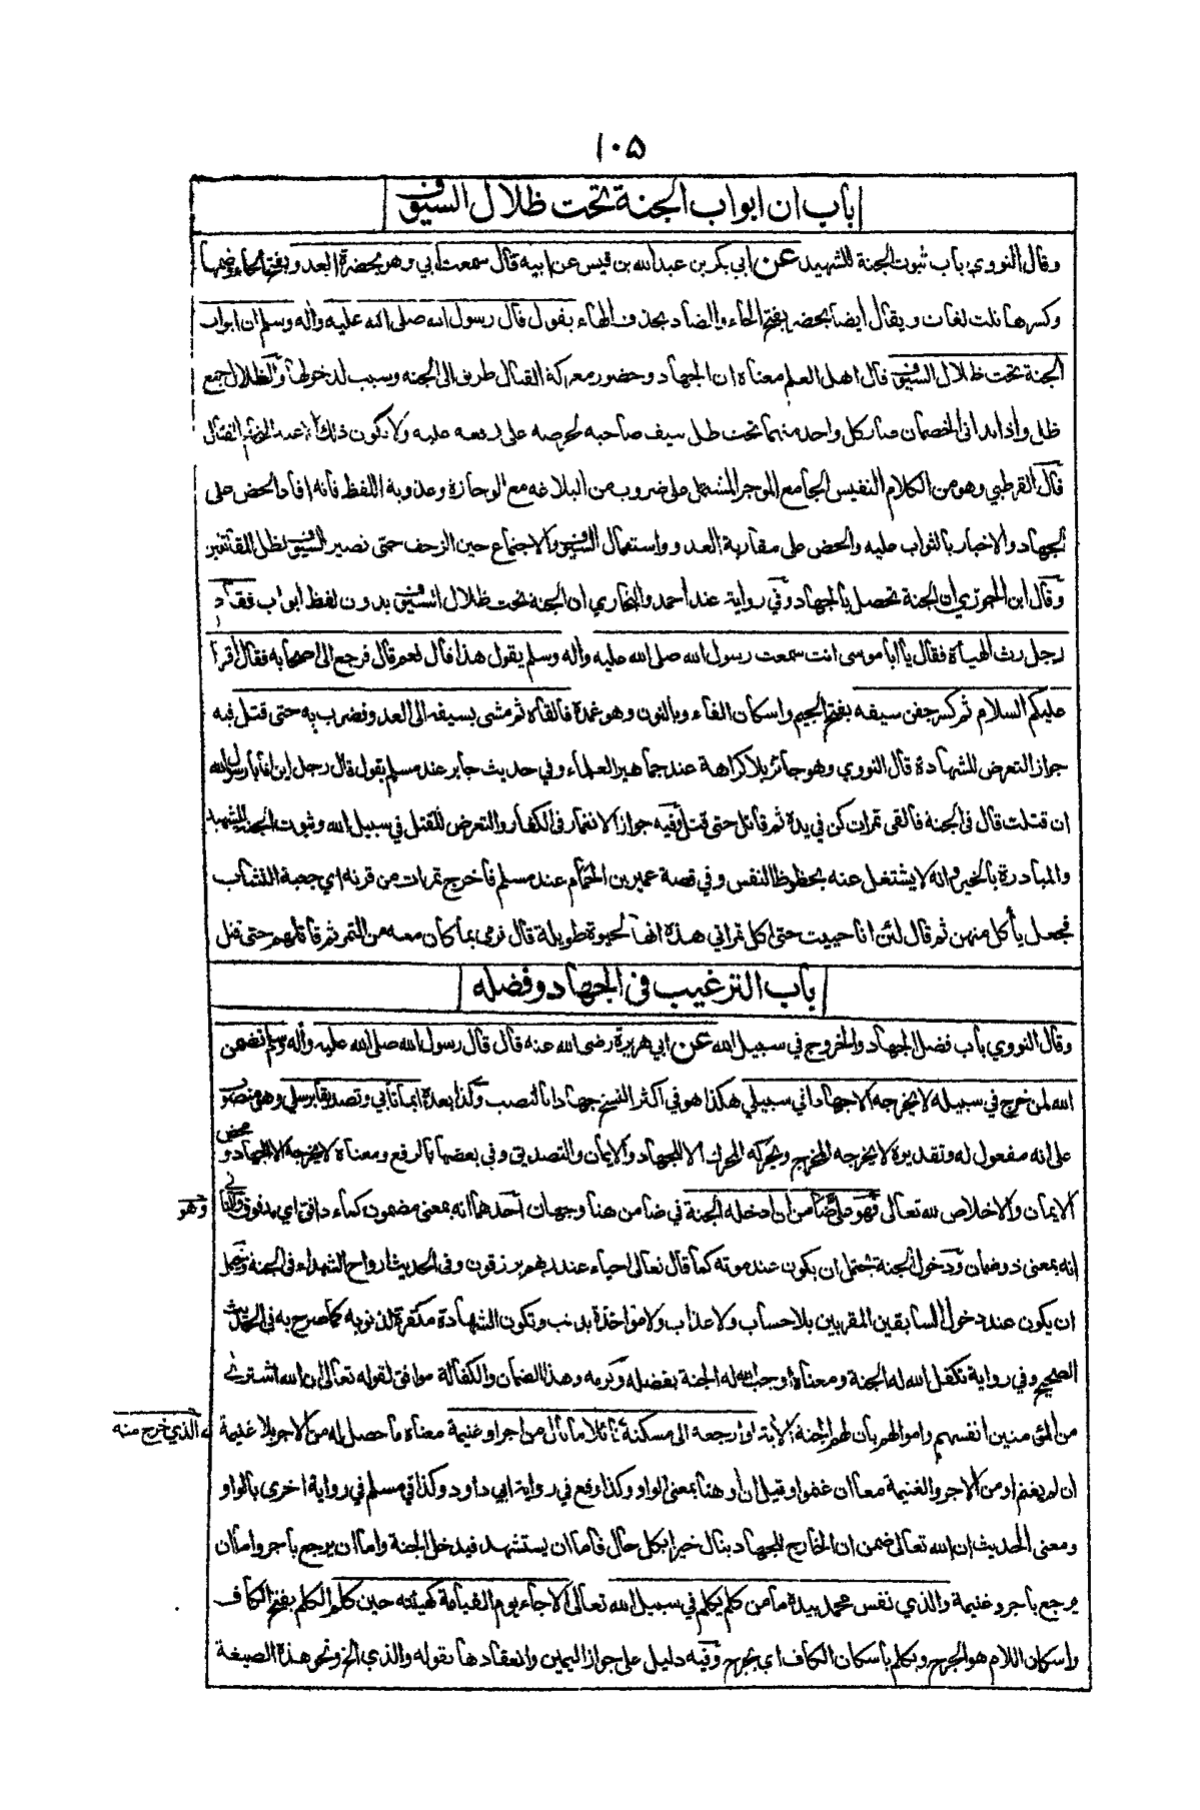 ١٠٥
باب ان ابواب الجنة تحت ظلال السيوف
وقال النووي باب ثبوت الجنة للشهيد عن ابي بكر بن عبد الله بن قيس عن ابيه قال سمعت ابي وهو بحضرة العدو بفتح الحاء وضمها
وكسرها ثلث لغات ويقال ايضا بحضر بفتح الحاء والضاد بحذف الهاء يقول قال رسول الله صلى الله عليه واله وسلم ان ابواب
الجنة تحت ظلال السيوف قال اهل العلم معناه ان الجهاد وحضور معركة القتال طريق الى الجنه وسبب لدخولها والظلال جمع
ظل واذا تدانى الخصمان صار كل واحد منهما تحت ظل سيف صاحبه لحرصه على رفعه عليه ولا يكون ذلك الا عند التحام القتال
قال القرطبي وهو من الكلام النفيس الجامع الموجز المشتمل على ضروب من البلاغه مع الوجازة وعذوبة اللفظ فانه افاد الحض على
الجهاد والاخبار بالثواب عليه والحض على مقاربة العدو واستعمال السيوف والاجتماع حين الزحف حتى تصير السيوف تظل المقاتلين
وقال ابن الجوزي ان الجنة تحصل بالجهاد وفي رواية عند احمد والبخاري ان الجنة تحت ظلال السيوف بدون لفظ ابواب فقام
رجل رث الهيأة فقال يا ابا موسى انت سمعت رسول الله صلى الله عليه واله وسلم يقول هذا قال نعم قال فرجع الى اصحابه فقال اقرأ
عليكم السلام ثم كسر جفن سيفه بفتح الجيم واسكان الفاء وبالنون وهو غمدة فالقاه ثم مشى بسيفه الى العدو فضرب به حتى قتل فيه
جواز التعرض للشهادة قال النووي وهو جائز بلا كراهة عند جماهير العلماء وفي حديث جابر عند مسلم يقول قال رجل اين انا يا رسول الله
ان قتلت قال في الجنه فالقى تمرات كن في يدة ثم قاتل حتى قتل وفيه جواز الانغمار في الكفار والتعرض للقتل في سبيل الله وثبوت الجنة للشهيد
والمبادرة بالخير وانه لا يشتغل عنه بحظوظ النفس وفي قصة عمير بن الحمام عند مسلم فاخرج تمرات من قرنه اي جعبة النشاب
فجعل يأكل منهن ثم قال لئن انا حييت حتى اكل تمراتي هذه انها لحيوة طويلة قال فرمى بما كان معه من التمر ثم قاتلهم حتى قتل
باب الترغيب في الجهاد وفضله
وقال النووي باب فضل الجهاد والخروج في سبيل الله عن ابي هريرة رضى الله عنه قال قال رسول الله صلى الله عليه واله وسلم تضمن
الله لمن خرج في سبيله لا يخرجه الا جهادا في سبيلي هكذا هو في اكثر النسخ جهادا بالنصب وكذا بعدة ايمانا بي وتصديقا برسلي وهو منصوب
على انه مفعول له وتقديرة لا يخرجه المخرج ويحركه المحرك الا للجهاد والايمان والتصديق وفي بعضها بالرفع ومعناه لا يخرجه الا محض الجهاد و
الايمان والاخلاص لله تعالى فهو علي ضامن ان ادخله الجنة في ضامن هنا وجهان احدهما انه بمعنى مضمون كماء دافق اي مدفوق والثاني
انه بمعنى ذو ضمان ودخول الجنة يحتمل ان يكون عند موته كما قال تعالى احياء عند ربهم يرزقون وفى الحديث ارواح الشهداء فى الجنة ويحتمل
ان يكون عند دخول السابقين المقربين بلا حساب ولا عذاب ولا مؤاخذة بذنب وتكون الشهادة مكفرة لذنوبه كما صرح به فى الحديث
الصحيح وفي رواية تكفل الله له الجنة ومعناه اوجب الله له الجنة بفضله وكرمه وهذا الضمان والكفالة موافق لقوله تعالى ان الله اشترى
من المؤمنين انفسهم واموالهم بان لهم الجنة الأية او ارجعه الى مسكنه نائلا ما نال من اجر او غنيمة معناه ما حصل له من الاجر بلا غنيمة
الذي خرج منه
وهو
ان لم يغنم او من الاجر والغنيمة معا ان غنموا وقيل ان او هنا بمعنى الواو وكذا وقع في رواية ابي داود وكذا في مسلم في رواية اخرى بالواو
ومعنى الحديث ان الله تعالى ضمن ان الخارج للجهاد ينال خيرا بكل حال فاما ان يستشهد فيدخل الجنة واما ان يرجع باجر واما ان
يرجع باجر وغنيمة والذي نفس محمد بيدة ما من كلم يكلم في سبيل الله تعالى الا جاء يوم القيامة كهيئته حين كلم الكلم بفتح الكاف
واسكان اللام هو الجرح ويكلم باسكان الكاف اي يجرح وفيه دليل على جواز اليمين وانعقادها بقوله والذي الخ ونحو هذة الصيغة